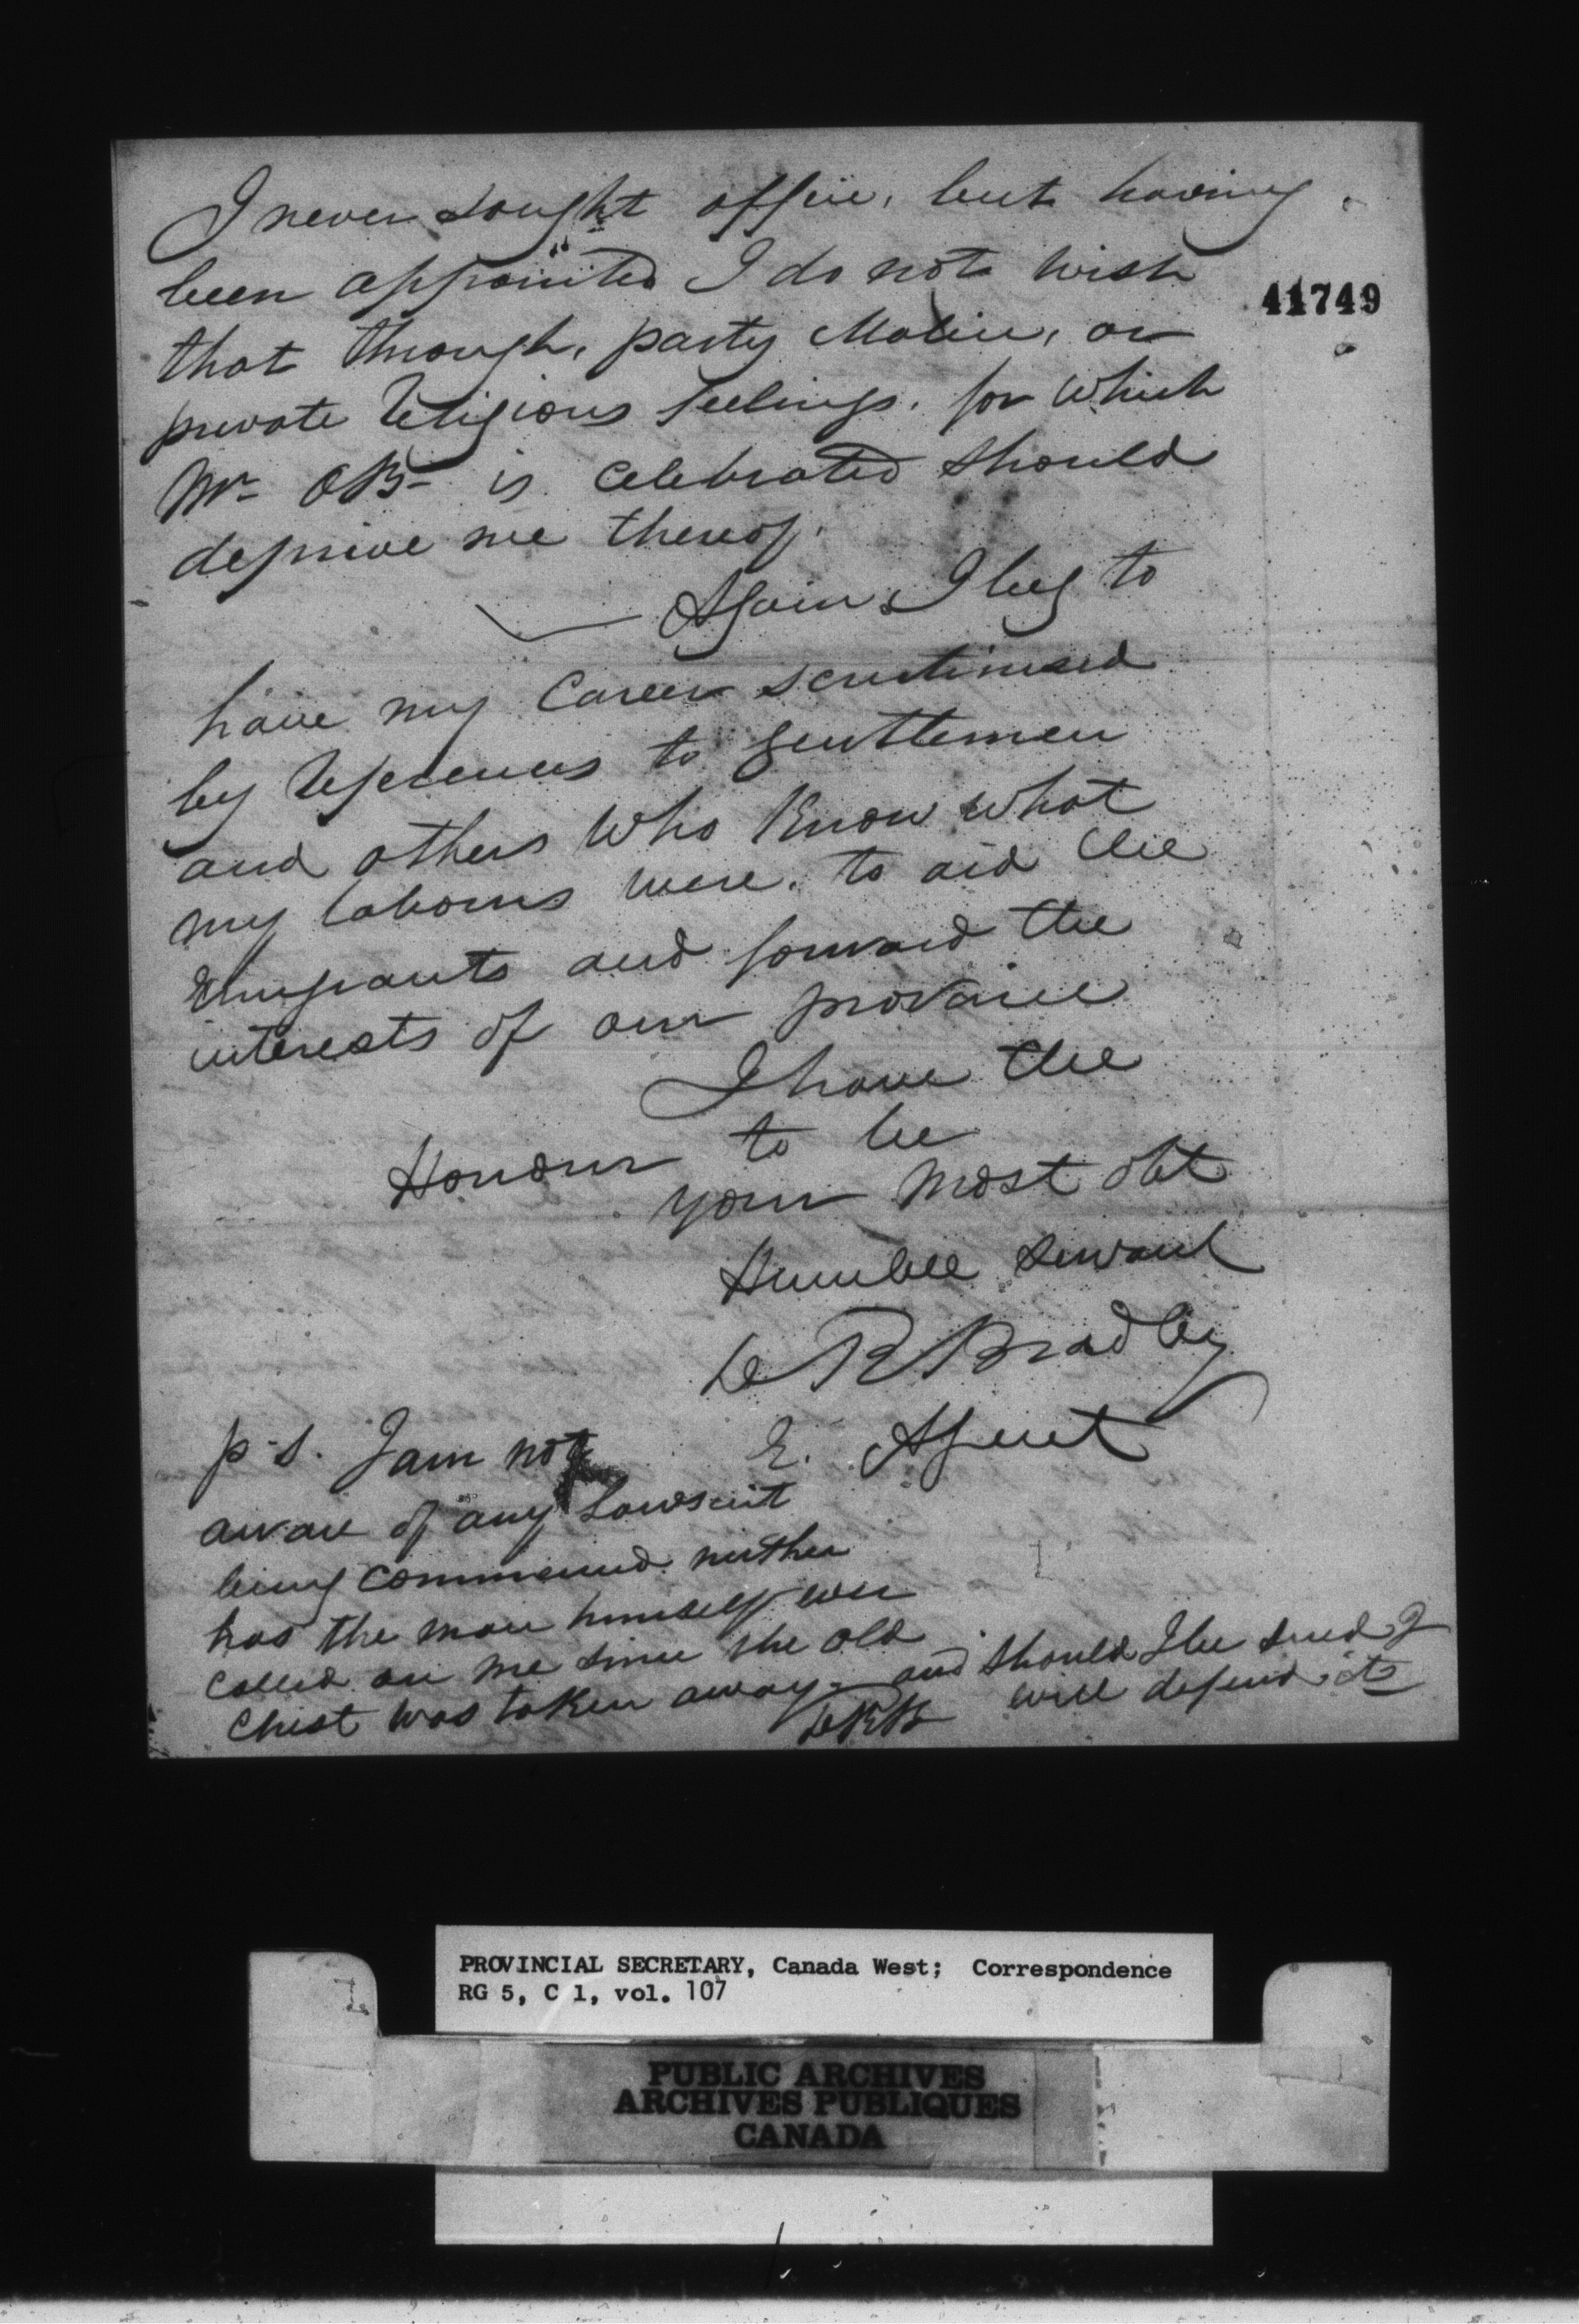 I never sought office, but having
been appointed I do not wish
41749
that through, party Malice, or
private religious feelings, for which
Mr OB- is celebrated should
deprive me thereof.
Again, I beg to
have my Career scrutinised
by references to gentlemen
and others who know what
my labours were, to aid the
Emigrants and forward the
interests of our province
I have the
Honour to be
your most obt
Humble Servant
R Bradley
E. Agent
p.s. I am not
aware of any Lawsuit
being commenced neither
has the man himself ever
called on me since the old
Chest was taken away. and should I be sued I
will defend it
PROVINCIAL SECRETARY, Canada West; Correspondence
RG 5, C 1, vol. 107
PUBLIC ARCHIVES
ARCHIVES PUBLIQUES
CANADA